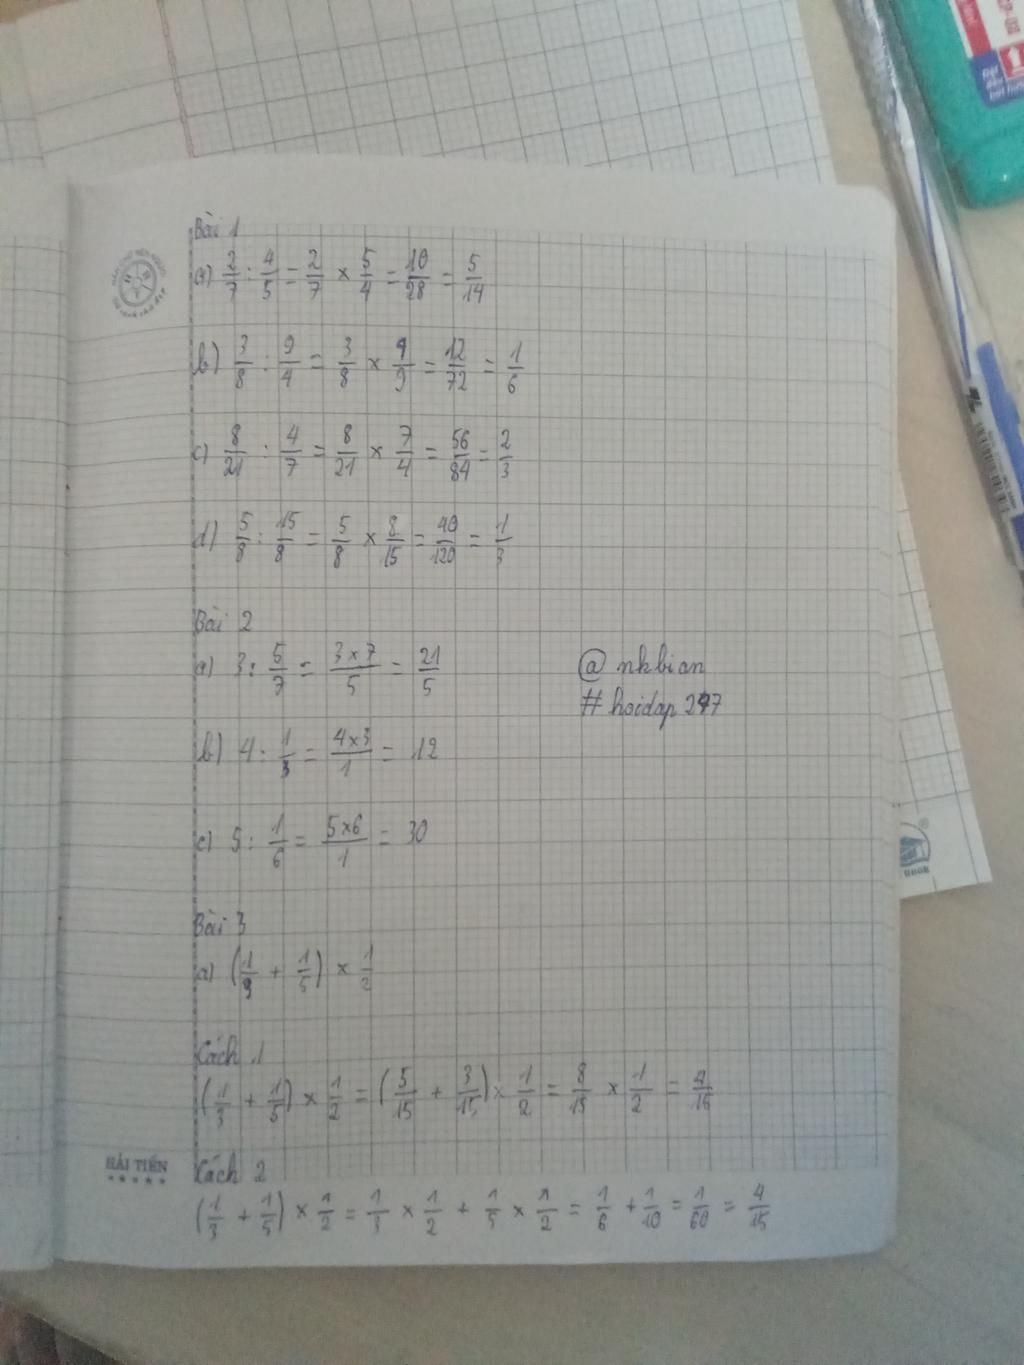 Bài 1
a) 2/7 : 4/5 = 2/7 × 5/4 = 10/28 = 5/14
b) 3/8 : 9/4 = 3/8 × 4/9 = 12/72 = 1/6
c) 8/21 : 4/7 = 8/21 × 7/4 = 56/84 = 2/3
d) 5/8 : 15/8 = 5/8 × 8/15 = 40/120 = 1/3
Bài 2
a) 3 : 5/7 = 3×7/5 = 21/5
@ nkbian
# hoidap247
b) 4 : 1/3 = 4×3/1 = 12
c) 5 : 1/6 = 5×6/1 = 30
Bài 3
a) (1/3 + 1/5) × 1/2
Cách 1
(1/3 + 1/5) × 1/2 = (5/15 + 3/15) × 1/2 = 8/15 × 1/2 = 4/15
HẢI TIẾN
Cách 2
(1/3 + 1/5) × 1/2 = 1/3 × 1/2 + 1/5 × 1/2 = 1/6 + 1/10 = 1/60 = 4/15